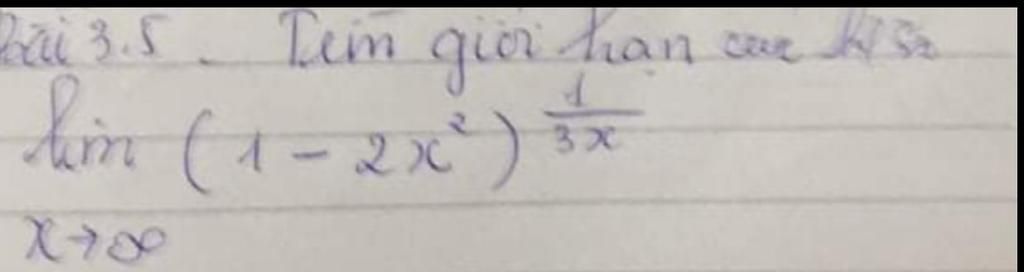 Bài 3.5. Tìm giới hạn của
lim (1 - 2x²)^(1/3x)
x→∞